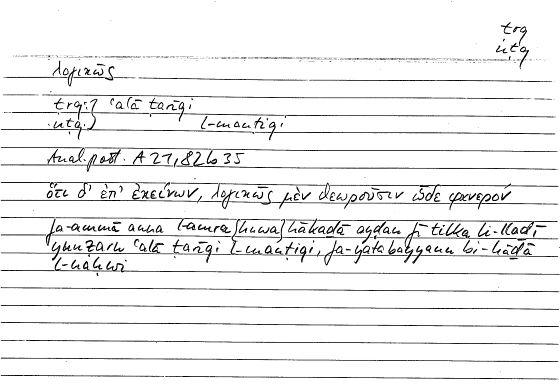 trq
nṭq
λογικῶς
trq:} ʿalā ṭarīqi
nṭq } l-manṭiqi
Anal. post. A 21, 82b35
ὅτι δ' ἐπ' ἐκείνων, λογικῶς μὲν θεωροῦσιν ὧδε φανερόν
fa-ammā anna l-amra {huwa} hākaḏā ayḍan fī tilka li-llaḏī
yanẓuru ʿalā ṭarīqi l-manṭiqi, fa-yatabayyanu bi-hāḏā
l-naḥwi